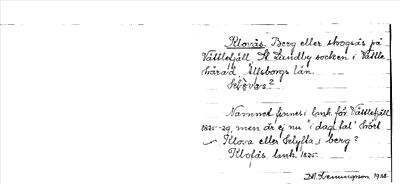 Klovås. Berg eller skogsås på
Vättlefjäll, St Lundby socken i Vättle
härad, Älvsborgs län.
Namnet finnes i lmk. för Vättlefjäll
1825-29, men är ej nu "i dag. tal" hört
Klova eller klyfta i berg?
Klofås, lmk. 1825.